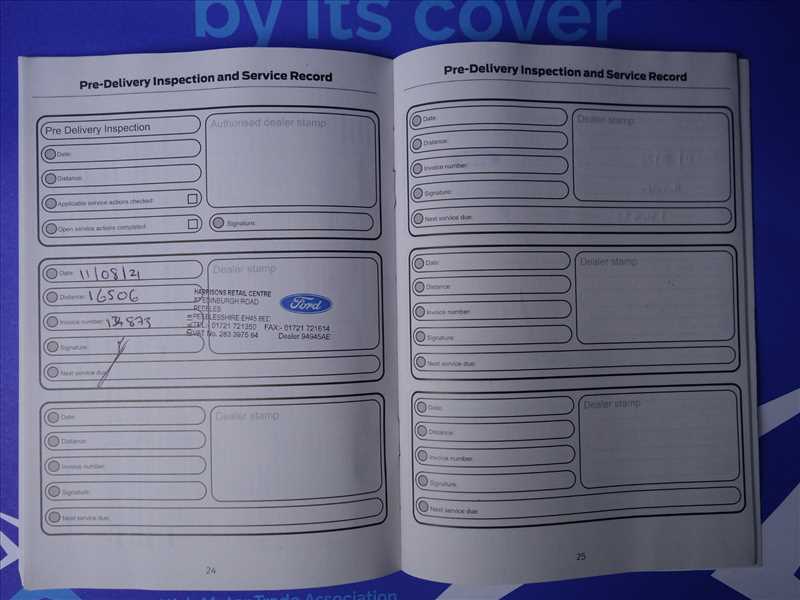 by its cover
Pre-Delivery Inspection and Service Record
Pre Delivery Inspection
Authorised dealer stamp
Date:
Distance:
Applicable service actions checked:
Open service actions completed:
Signature:
Date: 11/08/21
Distance: 16506
Invoice number: 134875
Signature:
Next service due:
Dealer stamp
HARRISONS RETAIL CENTRE
EDINBURGH ROAD
PEEBLES
PEEBLESSHIRE EH45 8ED
TEL:- 01721 721350 FAX:- 01721 721614
VAT No. 283 3975 64 Dealer 94945AE
Ford
Date:
Distance:
Invoice number:
Signature:
Next service due:
Dealer stamp
24
Pre-Delivery Inspection and Service Record
Date:
Distance:
Invoice number:
Signature:
Next service due:
Dealer stamp
Date:
Distance:
Invoice number:
Signature:
Next service due:
Dealer stamp
Date:
Distance:
Invoice number:
Signature:
Next service due:
Dealer stamp
25
Motor Trade Association